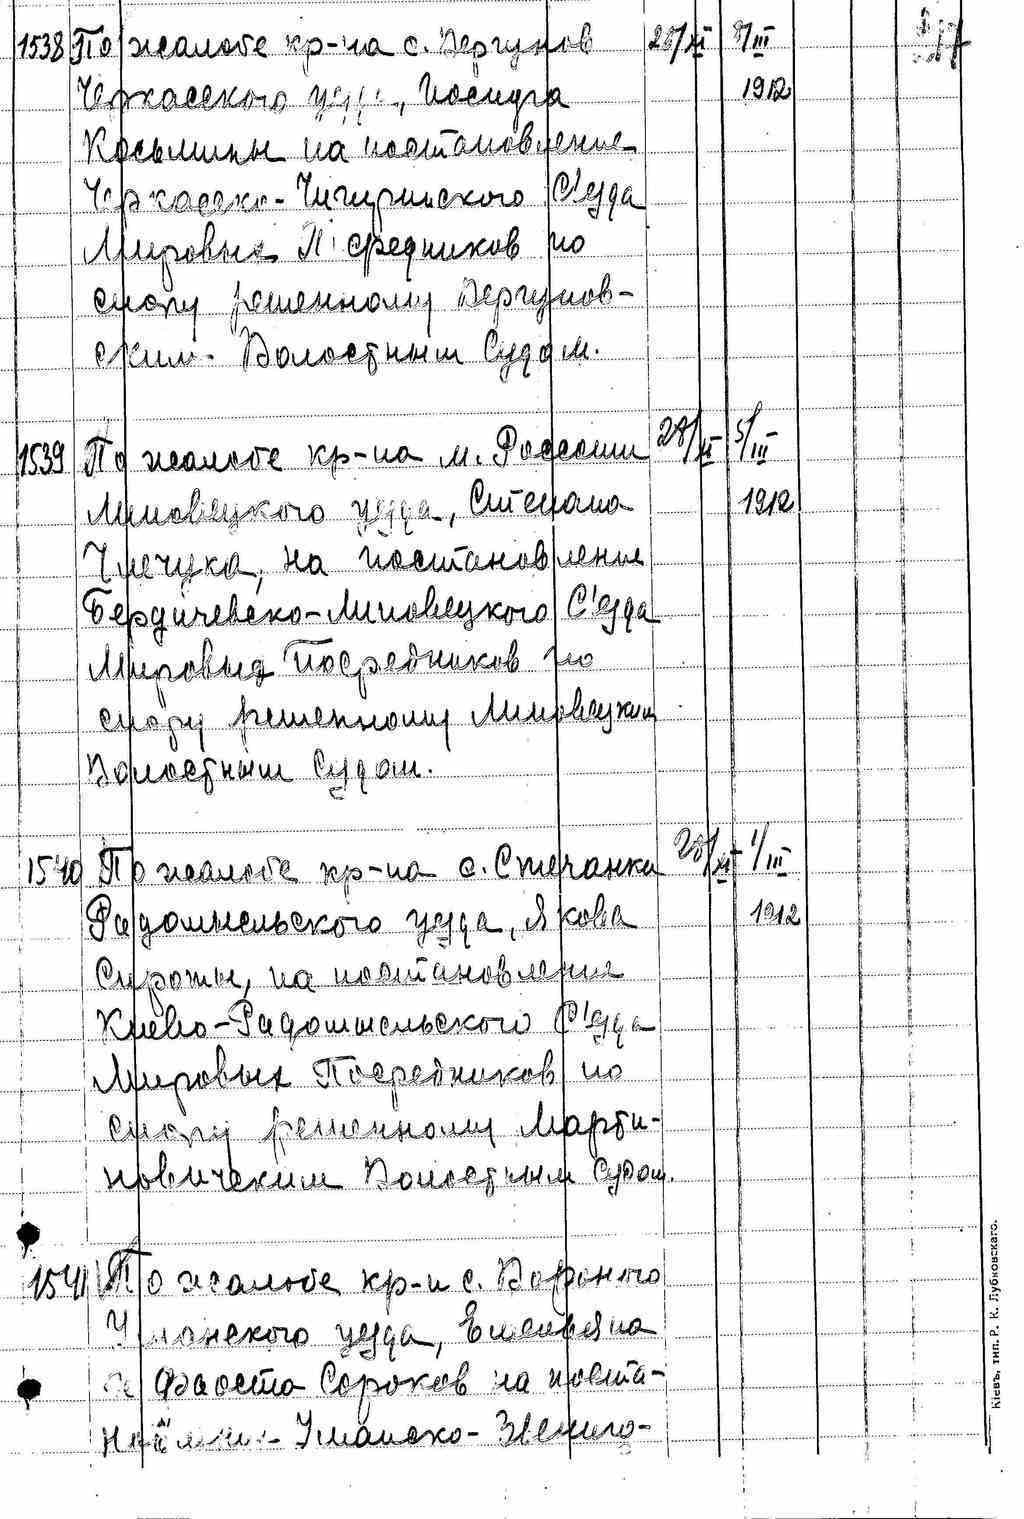 1538 По жалобе кр-на с. Вергунов 28/XI 5/III
Черкасского уезда, Иосифа 1912
Косьмины на постановление
Черкасско-Чигиринского С'езда
Мировых Посредников по
спору решенному Вергунов-
ским Волостным Судом.
1539 По жалобе кр-на м. Россоши 28/XI 5/III
Липовецкого уезда, Степана 1912
на постановление
Бердичевско-Липовецкого С'езда
Мировых Посредников по
спору решенному Липовецким
Волостным Судом.
1540 По жалобе кр-на с. Стечанки 28/XI 1/III
Радомысльского уезда, Якова 1912
Сироты, на постановление
Киево-Радомысльского С'езда
Мировых Посредников по
спору решенному Марти-
новическим Волостным Судом.
1541 По жалобе кр-н с. Вороного
Уманского уезда, Емельяна
и Феоста Сороков на поста-
новление Уманско-Звениго-
Кіевъ, тип. Р. К. Лубковскаго.